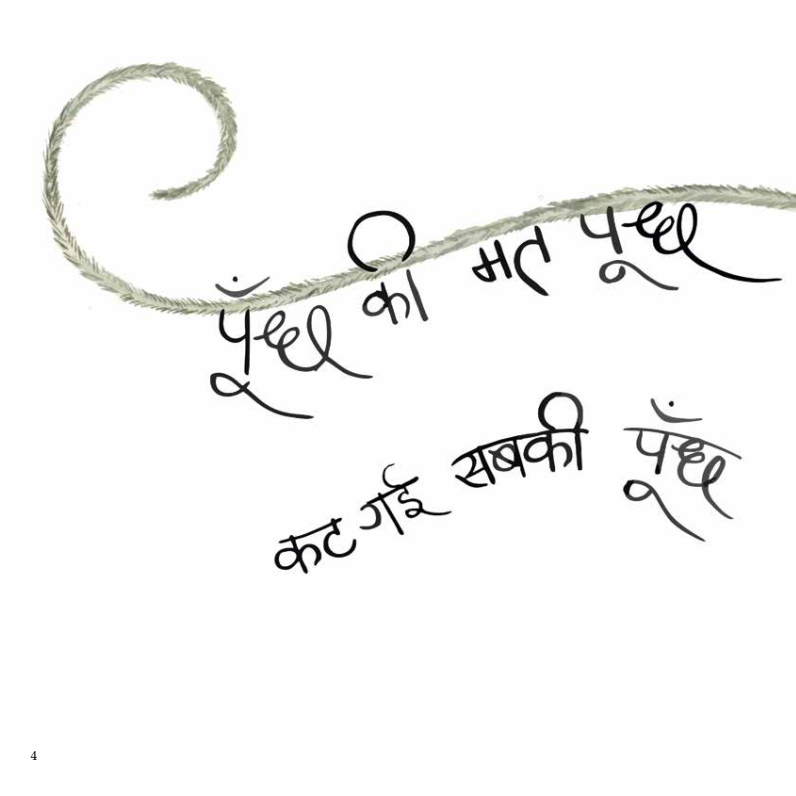 पूँछ की मत पूछ
कट गई सबकी पूँछ
4